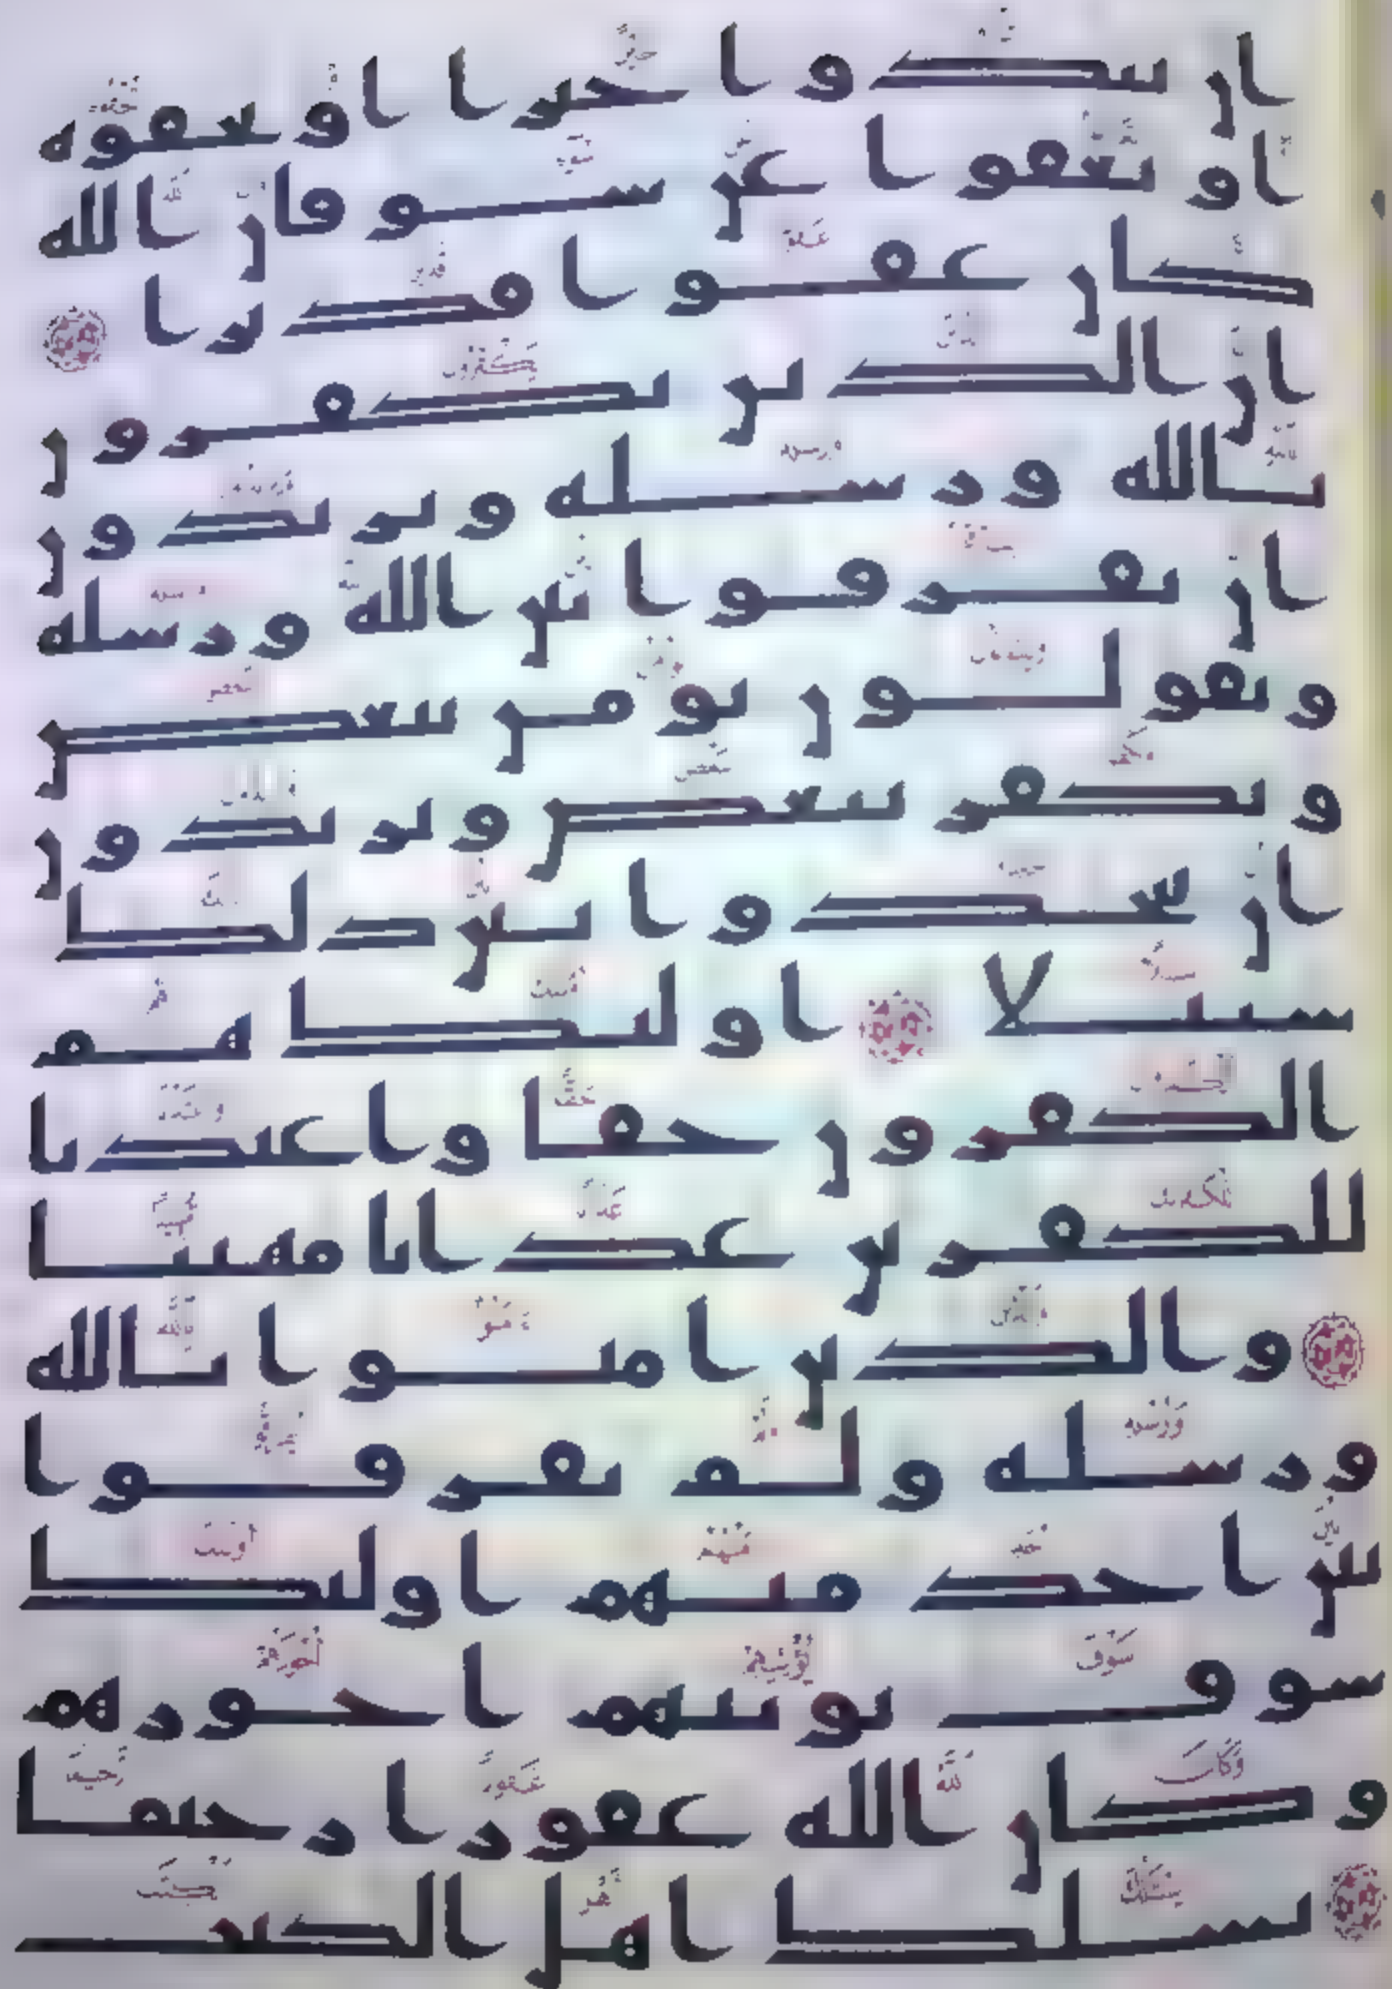 ان تبدوا خيرا او تخفوه
او تعفوا عن سو فان الله
كان عفوا قديرا
ان الذين يكفرون
بالله ورسله ويريدون
ان يفرقوا بين الله ورسله
ويقولون نومن ببعض
ونكفر ببعض ويريدون
ان يتخذوا بين ذلك
سبيلا اوليك هم
الكفرون حقا واعتدنا
للكفرين عذابا مهينا
والذين امنوا بالله
ورسله ولم يفرقوا
بين احد منهم اوليك
سوف يوتيهم اجورهم
وكان الله غفورا رحيما
يسلك اهل الكتب